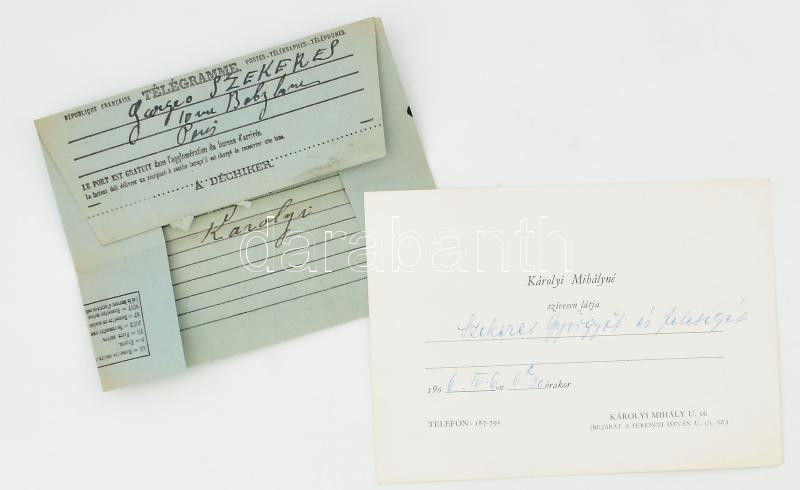 RÉPUBLIQUE FRANÇAISE TÉLÉGRAMME. POSTES-TÉLÉGRAPHES-TÉLÉPHONES.
Georges SZEKERES
10 rue Babylone
Paris
LE PORT EST GRATUIT dans l'agglomération du bureau d'arrivée.
Le facteur doit délivrer un récépissé à souche lorsqu'il est chargé de recouvrer une taxe.
A DÉCHIRER.
Karolyi
darabanth
Károlyi Mihályné
szívesen látja
Szekeres Györgyöt és feleségét
196 6. IV-6.-n 6 h 30 órakor
TELEFON: 187-791
KÁROLYI MIHÁLY U. 16
(BEJÁRAT A FERENCZI ISTVÁN U. SZ.)